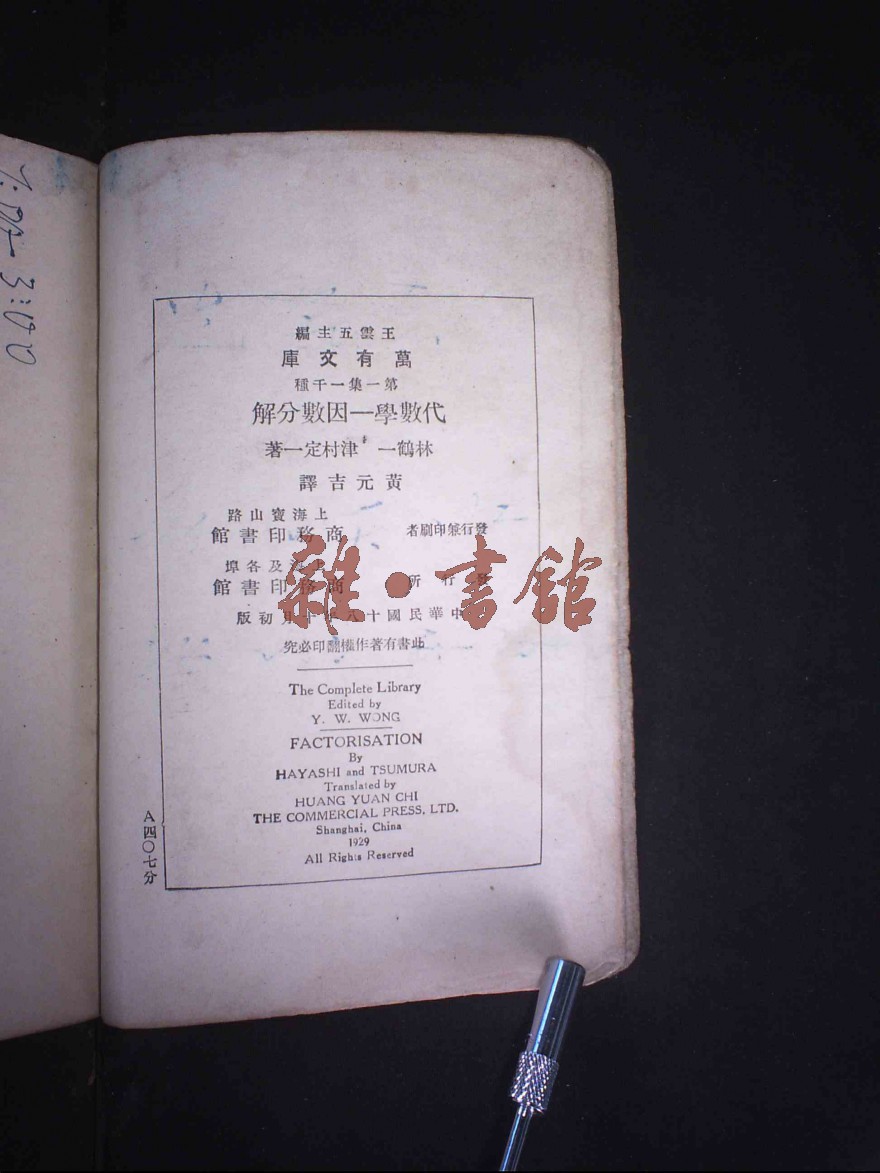 王雲五主編
萬有文庫
第一集一千種
代數學—因數分解
林鶴一 津村定一著
黃元吉譯
發行兼印刷者
上海寶山路
商務印書館
發行所
上海及各埠
商務印書館
中華民國十八年十月初版
此書有著作權翻印必究
The Complete Library
Edited by
Y. W. WONG
FACTORISATION
By
HAYASHI and TSUMURA
Translated by
HUANG YUAN CHI
THE COMMERCIAL PRESS, LTD.
Shanghai, China
1929
All Rights Reserved
A四〇七分
雜·書館